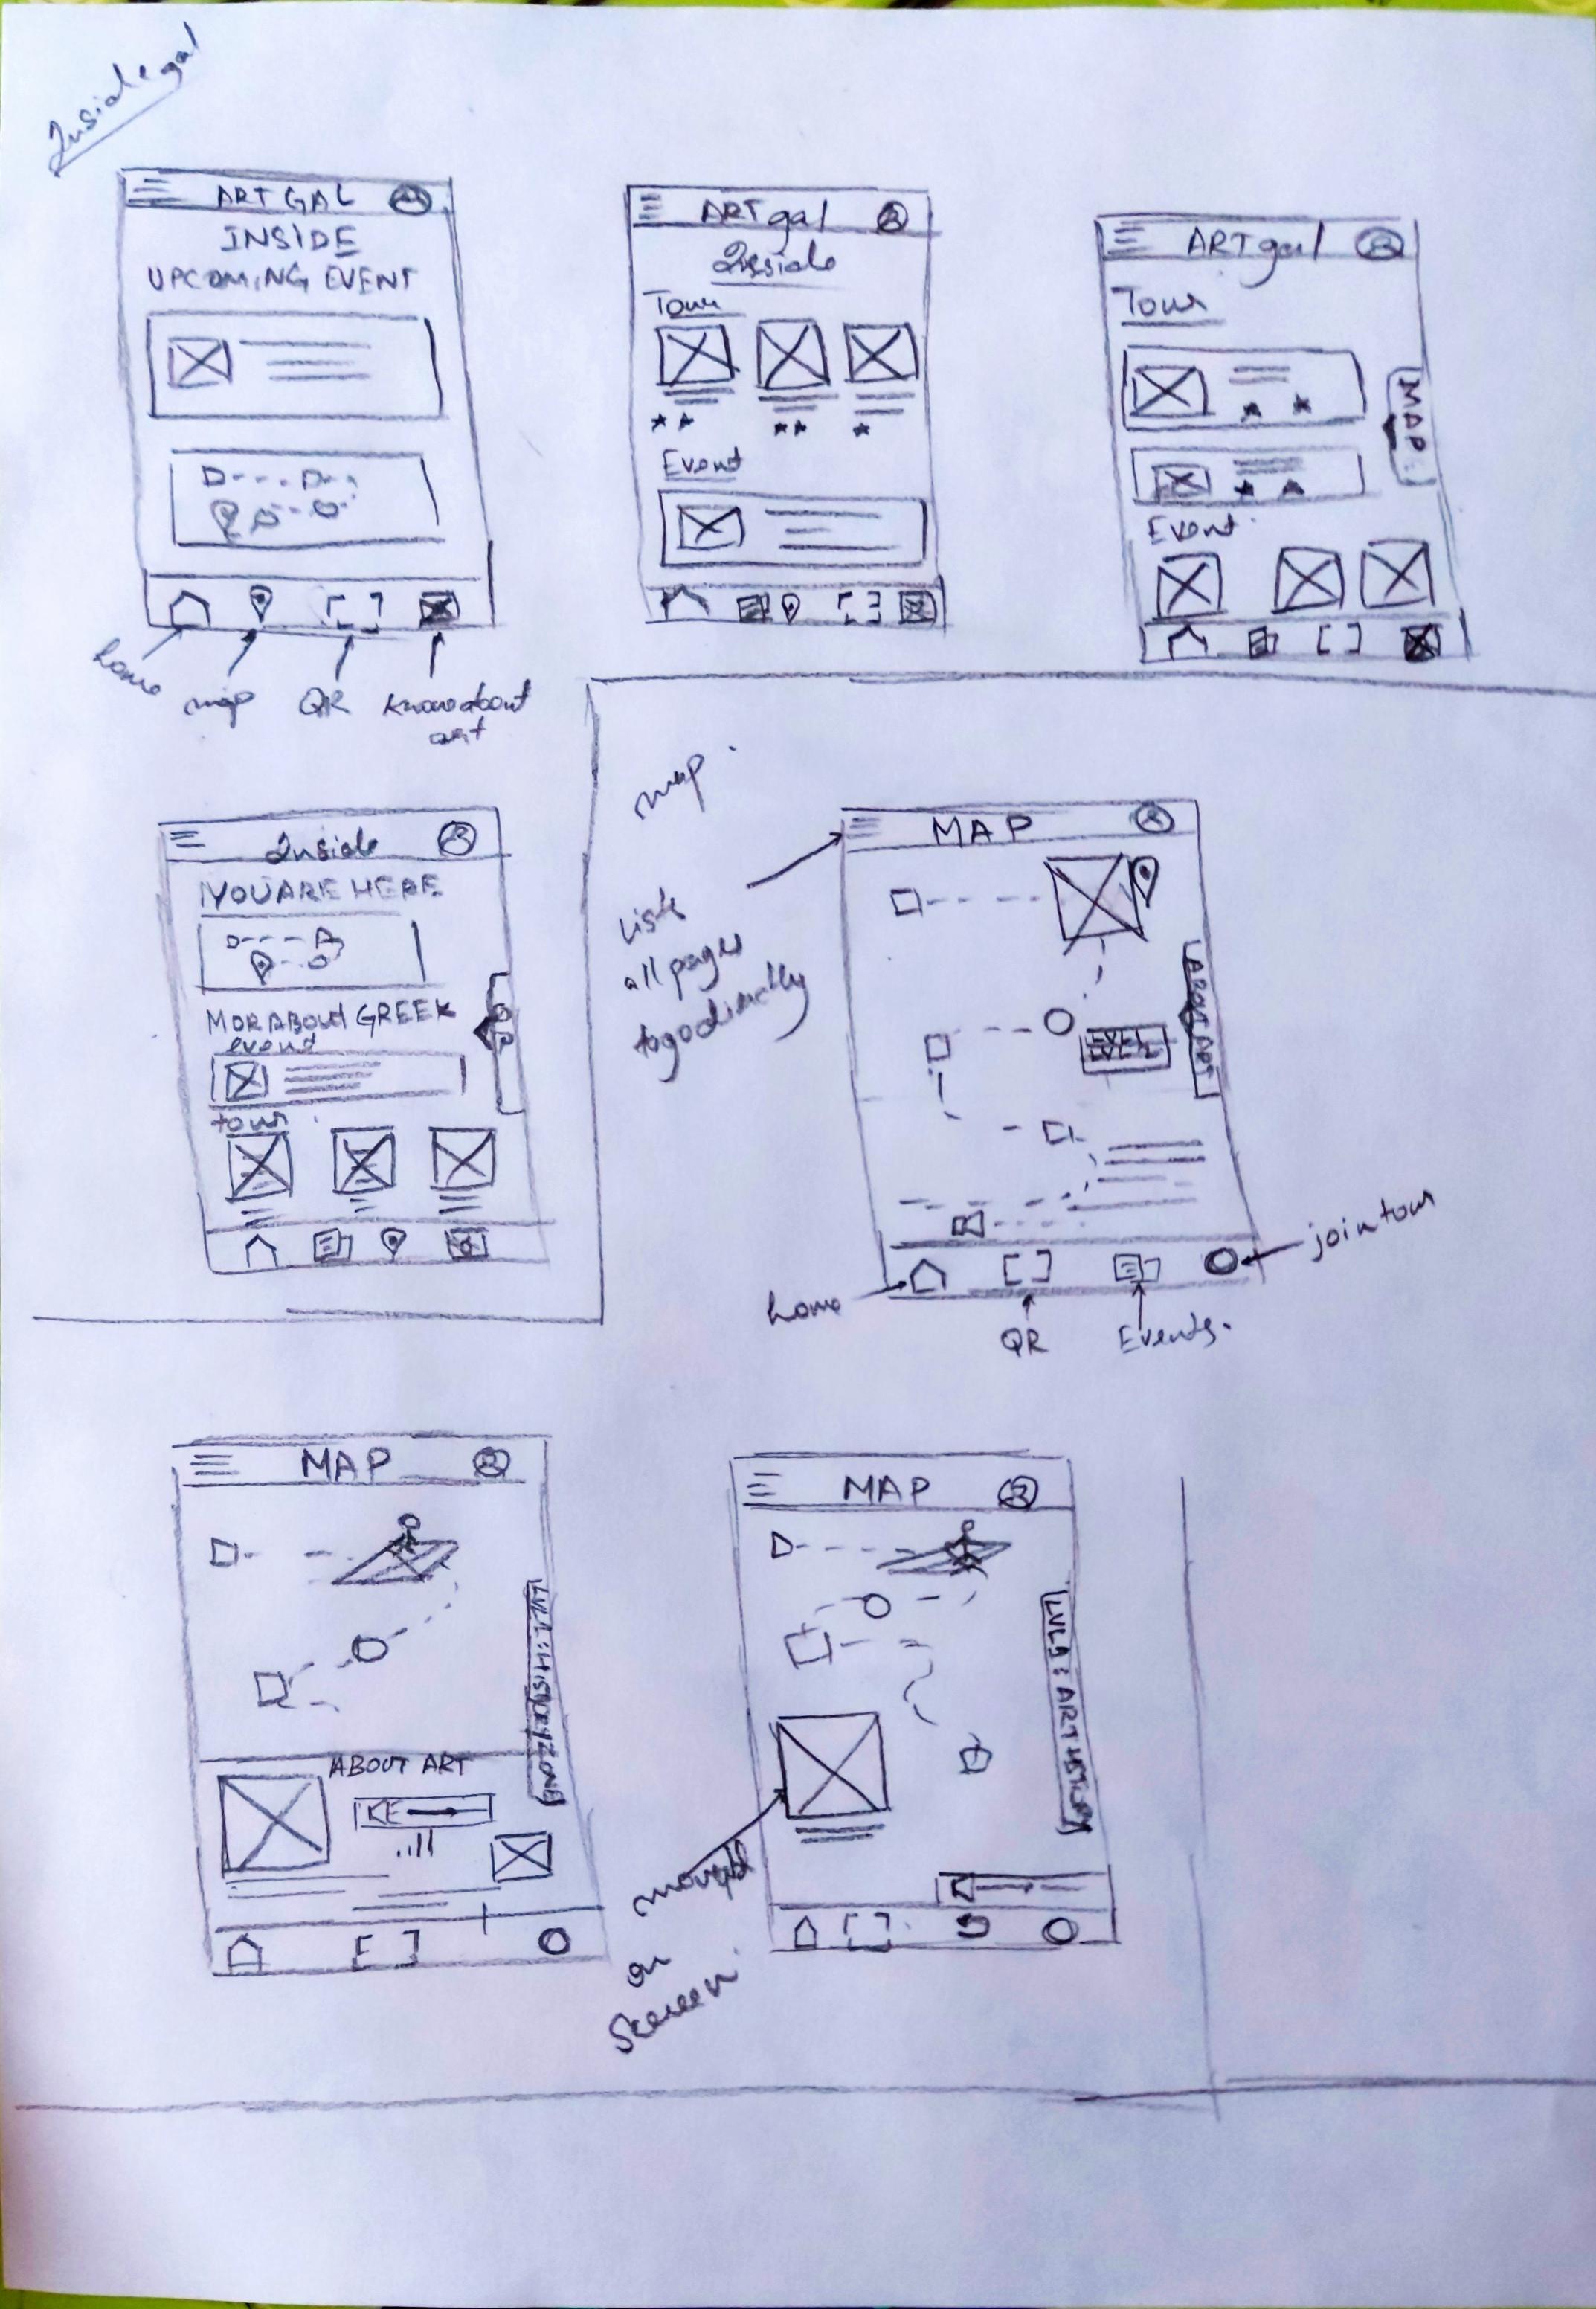 Inside gal
ART GAL
INSIDE
UPCOMING EVENT
home
map
QR
Know about
art
ART gal
Inside
Tour
Event
ART gal
Tour
MAP
Event
Inside
YOU ARE HERE
MOR ABOUT GREEK
event
QR
tour
map.
Lists
all pages
to go directly
MAP
ABOUT ART
home
QR
Events.
join tour
MAP
LVL 1: HISTORY ZONE
ABOUT ART
MAP
LVL 1: ART HISTORY
on
screen